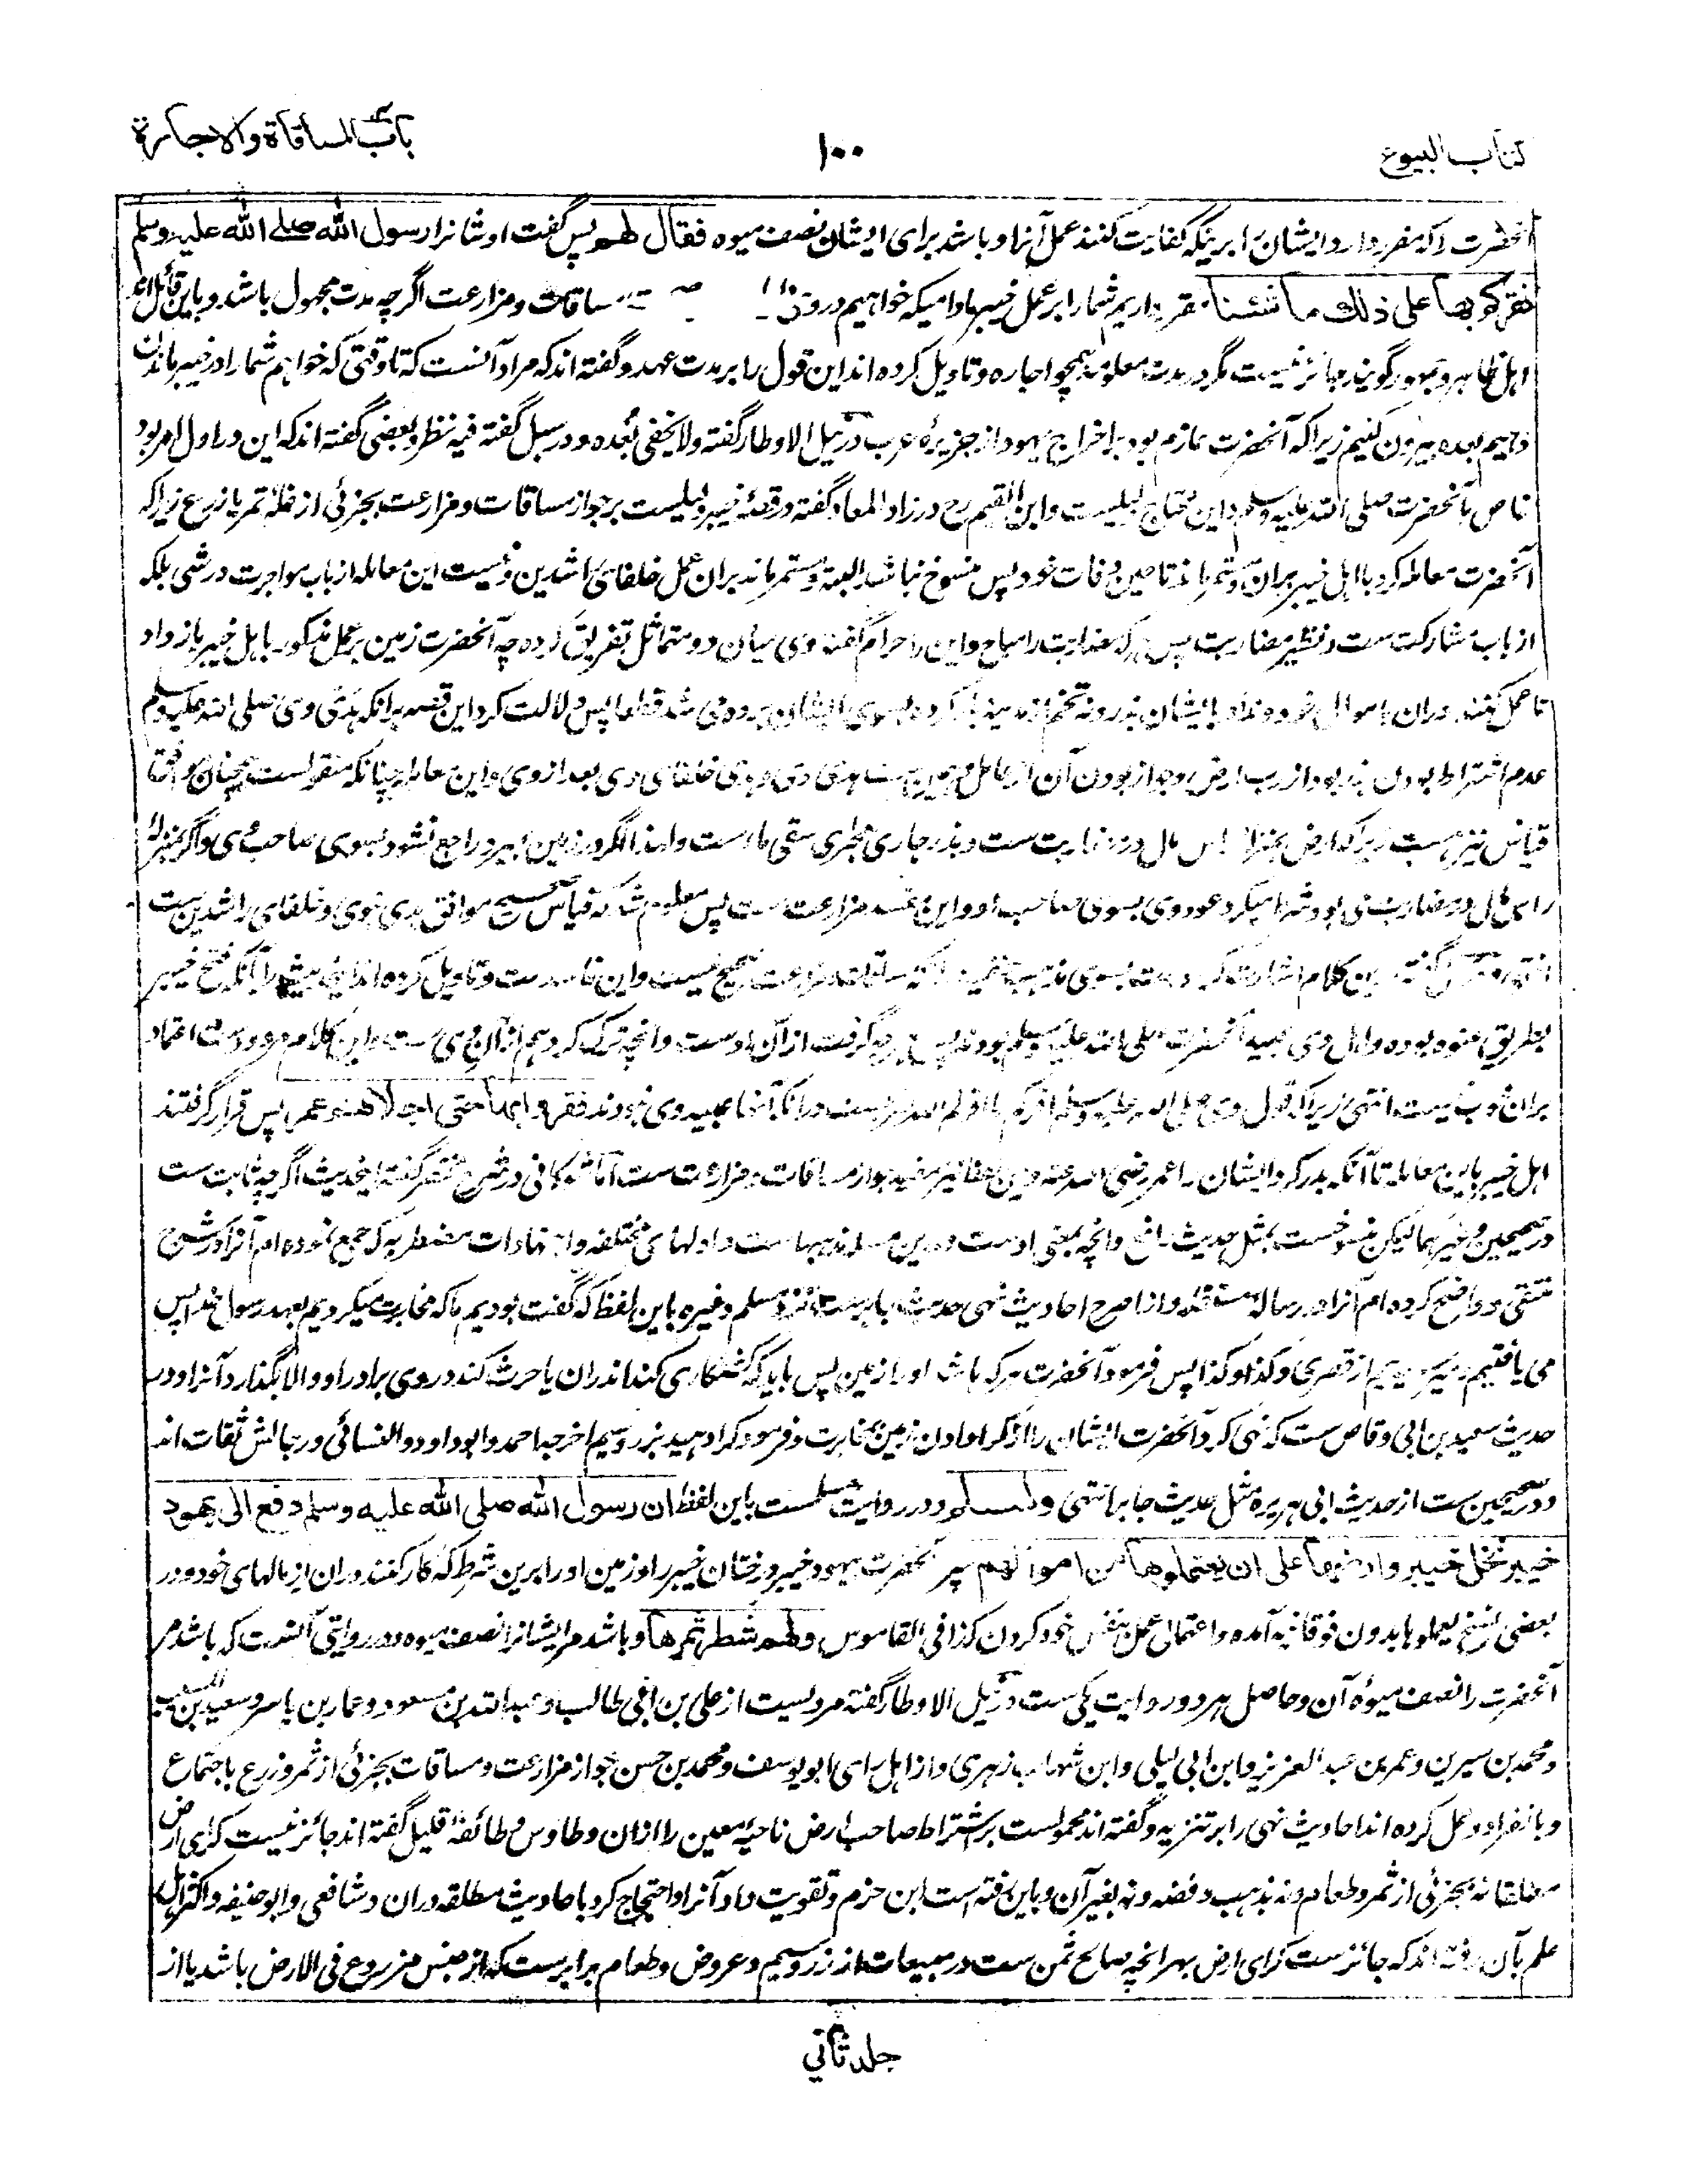 کتاب البیوع
۱۰۰
باب المساقاة والاجارة
آنحضرت را که مقرر دارد ایشان را برینکه کفایت کنند عمل آنرا و باشد برای ایشان نصف میوه فقال لهم پس گفت اوشانرا رسول الله صلے الله علیہ وسلم
نقرکم بها علی ذلك ما شئنا مقرر داریم شما را بر عمل خیبر مادامیکه خواهیم و درو مساقات و مزارعت اگرچه مدت مجهول باشد و باین قائل اند
اهل ظاهر و جمهور گویند جائز نیست مگر در مدت معلومه همچو اجاره و تاویل کرده اند این قول را بر مدت عهد و گفته اند که مراد آنست که تا وقتی که خواهم شما را در خیبر ماندن
دهیم بعده بیرون کنیم زیرا که آنحضرت عازم بود بر اخراج یهود از جزیرۀ عرب در نیل الاوطار گفته ولا یخفی بُعده و در سبل گفته فیه نظر و بعضی گفته اند که این در اول امر بود
خاص بآنحضرت صلی الله علیه وسلم و این محتاج دلیلست و ابن القیم رح در زاد المعاد گفته در قصۀ خیبر دلیلست بر جواز مساقات و مزارعت بجزئی از غلۀ ثمر یا زرع زیرا که
آنحضرت معامله کرد با اهل خیبر بران و مستمر ماند تا حین وفات خود پس منسوخ نباشد البته و مستمر ماند بران عمل خلفای راشدین و نیست این معامله از باب مواجرت در شی بلکه
از باب مشارکت ست و نظیر مضاربت پس هر که مضاربت را مباح و این را حرام گفته وی میان دو متماثل تفریق کرده چه آنحضرت زمین بر عمل مذکور باهل خیبر باز داد
تا عمل کنند دران باموال خود و نداد بایشان بذر و نه تخم از مدینه بار کرده بسوی ایشان برده می شد قطعا پس دلالت کرد این قصه برانکه هَدْیِ وی صلی الله علیه وسلم
عدم اشتراط بودن بذر بود از رب ارض و جواز بودن آن از عامل و همین ست هدی وی و هدی خلفای وی بعد از وی و این معامله چنانکه منقولست همچنان موافق
قیاس نیز هست زیرا که ارض بمنزلۀ راس مال در مضاربت ست و بذر جاری مجرای سقی ماء ست ولهذا اگر در زمین بمیرد راجع نشود بسوی صاحب وی و اگر بمنزلۀ
راس مال در مضاربت می بود شرط میکرد عود وی بسوی صاحب او و این مفسد مزارعت ست پس معلوم شد که قیاس صحیح موافق هدی نبوی و خلفای راشدین ست
انتهی گفته درین کلام اشارت کرده ست بسوی مذهب حنفیه که مساقات و مزارعت صحیح نیست و این فاسدست و تاویل کرده اند این حدیث را بآنکه فتح خیبر
بطریق عنوه بوده و اهل وی عبید آنحضرت صلی الله علیه وسلم بودند پس هرچه گرفت ازان اوست و آنچه ترک کرد هم ازان وی ست و این کلام مردودست اعتماد
بران خوب نیست انتهی زیرا که قول وی صلی الله علیه وسلم اقرکم ما اقرکم الله صریحست درانکه آنها عبید وی نبودند فقروا بها حتی اجلاهم عمر پس قرار گرفتند
اهل خیبر باین معامله تا آنکه بدر کرد ایشان را عمر رضی الله عنه و این لفظ نیز مفید جواز مساقات و مزارعت ست اما شوکانی در شرح مختصر گفته اینحدیث اگرچه ثابت ست
در صحیحین و غیرهما لیکن منسوخست بمثل حدیث رافع و آنچه بمعنی اوست و درین مسئله مذهبهاست و ادلهای مختلفه و اجتهادات مضطربه که جمع نموده ام آنرا در شرح
منتقی و واضح کرده ام آنرا در رسالۀ مستقله و از اصرح احادیث نهی حدیث جابرست نزد مسلم و غیره باین لفظ که گفت بودیم ما که مخابرت میکردیم بعهد رسول خدا پس
می یافتیم از قصری و کذا و کذا پس فرمود آنحضرت هر که باشد او را زمین پس باید که کشتکاری کند اندران یا حرث کند در وی برادر او و الا بگذارد آنرا و در
حدیث سعید بن ابی وقاص ست که نهی کرد آنحضرت ایشان را از کرا دادن زمین بمخابرت و فرمود کرا دهید بزر و سیم اخرجه احمد و ابو داود و النسائی و رجالش ثقات اند
و در صحیحین ست از حدیث ابی هریره مثل حدیث جابر انتهی ولمسلم و در روایت مسلمست باین لفظ ان رسول الله صلی الله علیه وسلم دفع الی یهود
خیبر نخل خیبر وارضها علی ان یعتملوها من اموالهم سپرد آنحضرت یهود خیبر درختان خیبر را و زمین او را برین شرط که کار کنند دران از مالهای خود و در
بعضی نسخ یعملوها بدون فوقانیه آمده و اعتمال عمل بنفس خود کردن کذا فی القاموس ولهم شطر ثمرها و باشد مر ایشانرا نصف میوه و در روایتی آنست که باشد مر
آنحضرت را نصف میوۀ آن و حاصل هر دو روایت یکی ست در نیل الاوطار گفته مرویست از علی بن ابی طالب و عبد الله بن مسعود و عمار بن یاسر و سعید بن المسیب
و محمد بن سیرین و عمر بن عبد العزیز و ابن ابی لیلی و ابن شهاب زهری و از اهل رای ابو یوسف و محمد بن حسن جواز مزارعت و مساقات بجزئی از ثمر و زرع باجتماع
و بانفراد و حمل کرده اند احادیث نهی را بر تنزیه و گفته اند محمولست بر اشتراط صاحب ارض ناحیۀ معین را ازان و طاوس و طائفۀ قلیل گفته اند جائز نیست کرای ارض
مطلقا نه بجزئی از ثمر و طعام و نه بذهب و فضه و نه بغیر آن و باین رفته است ابن حزم و تقویت داد آنرا و احتجاج کرد باحادیث مطلقه دران و شافعی و ابو حنیفه و اکثر اهل
علم بآن رفته اند که جائزست کرای ارض بهر آنچه صالح ثمن ست در مبیعات از زر و سیم و عروض و طعام برابرست که از جنس مزروع فی الارض باشد یا از
جلد ثانی